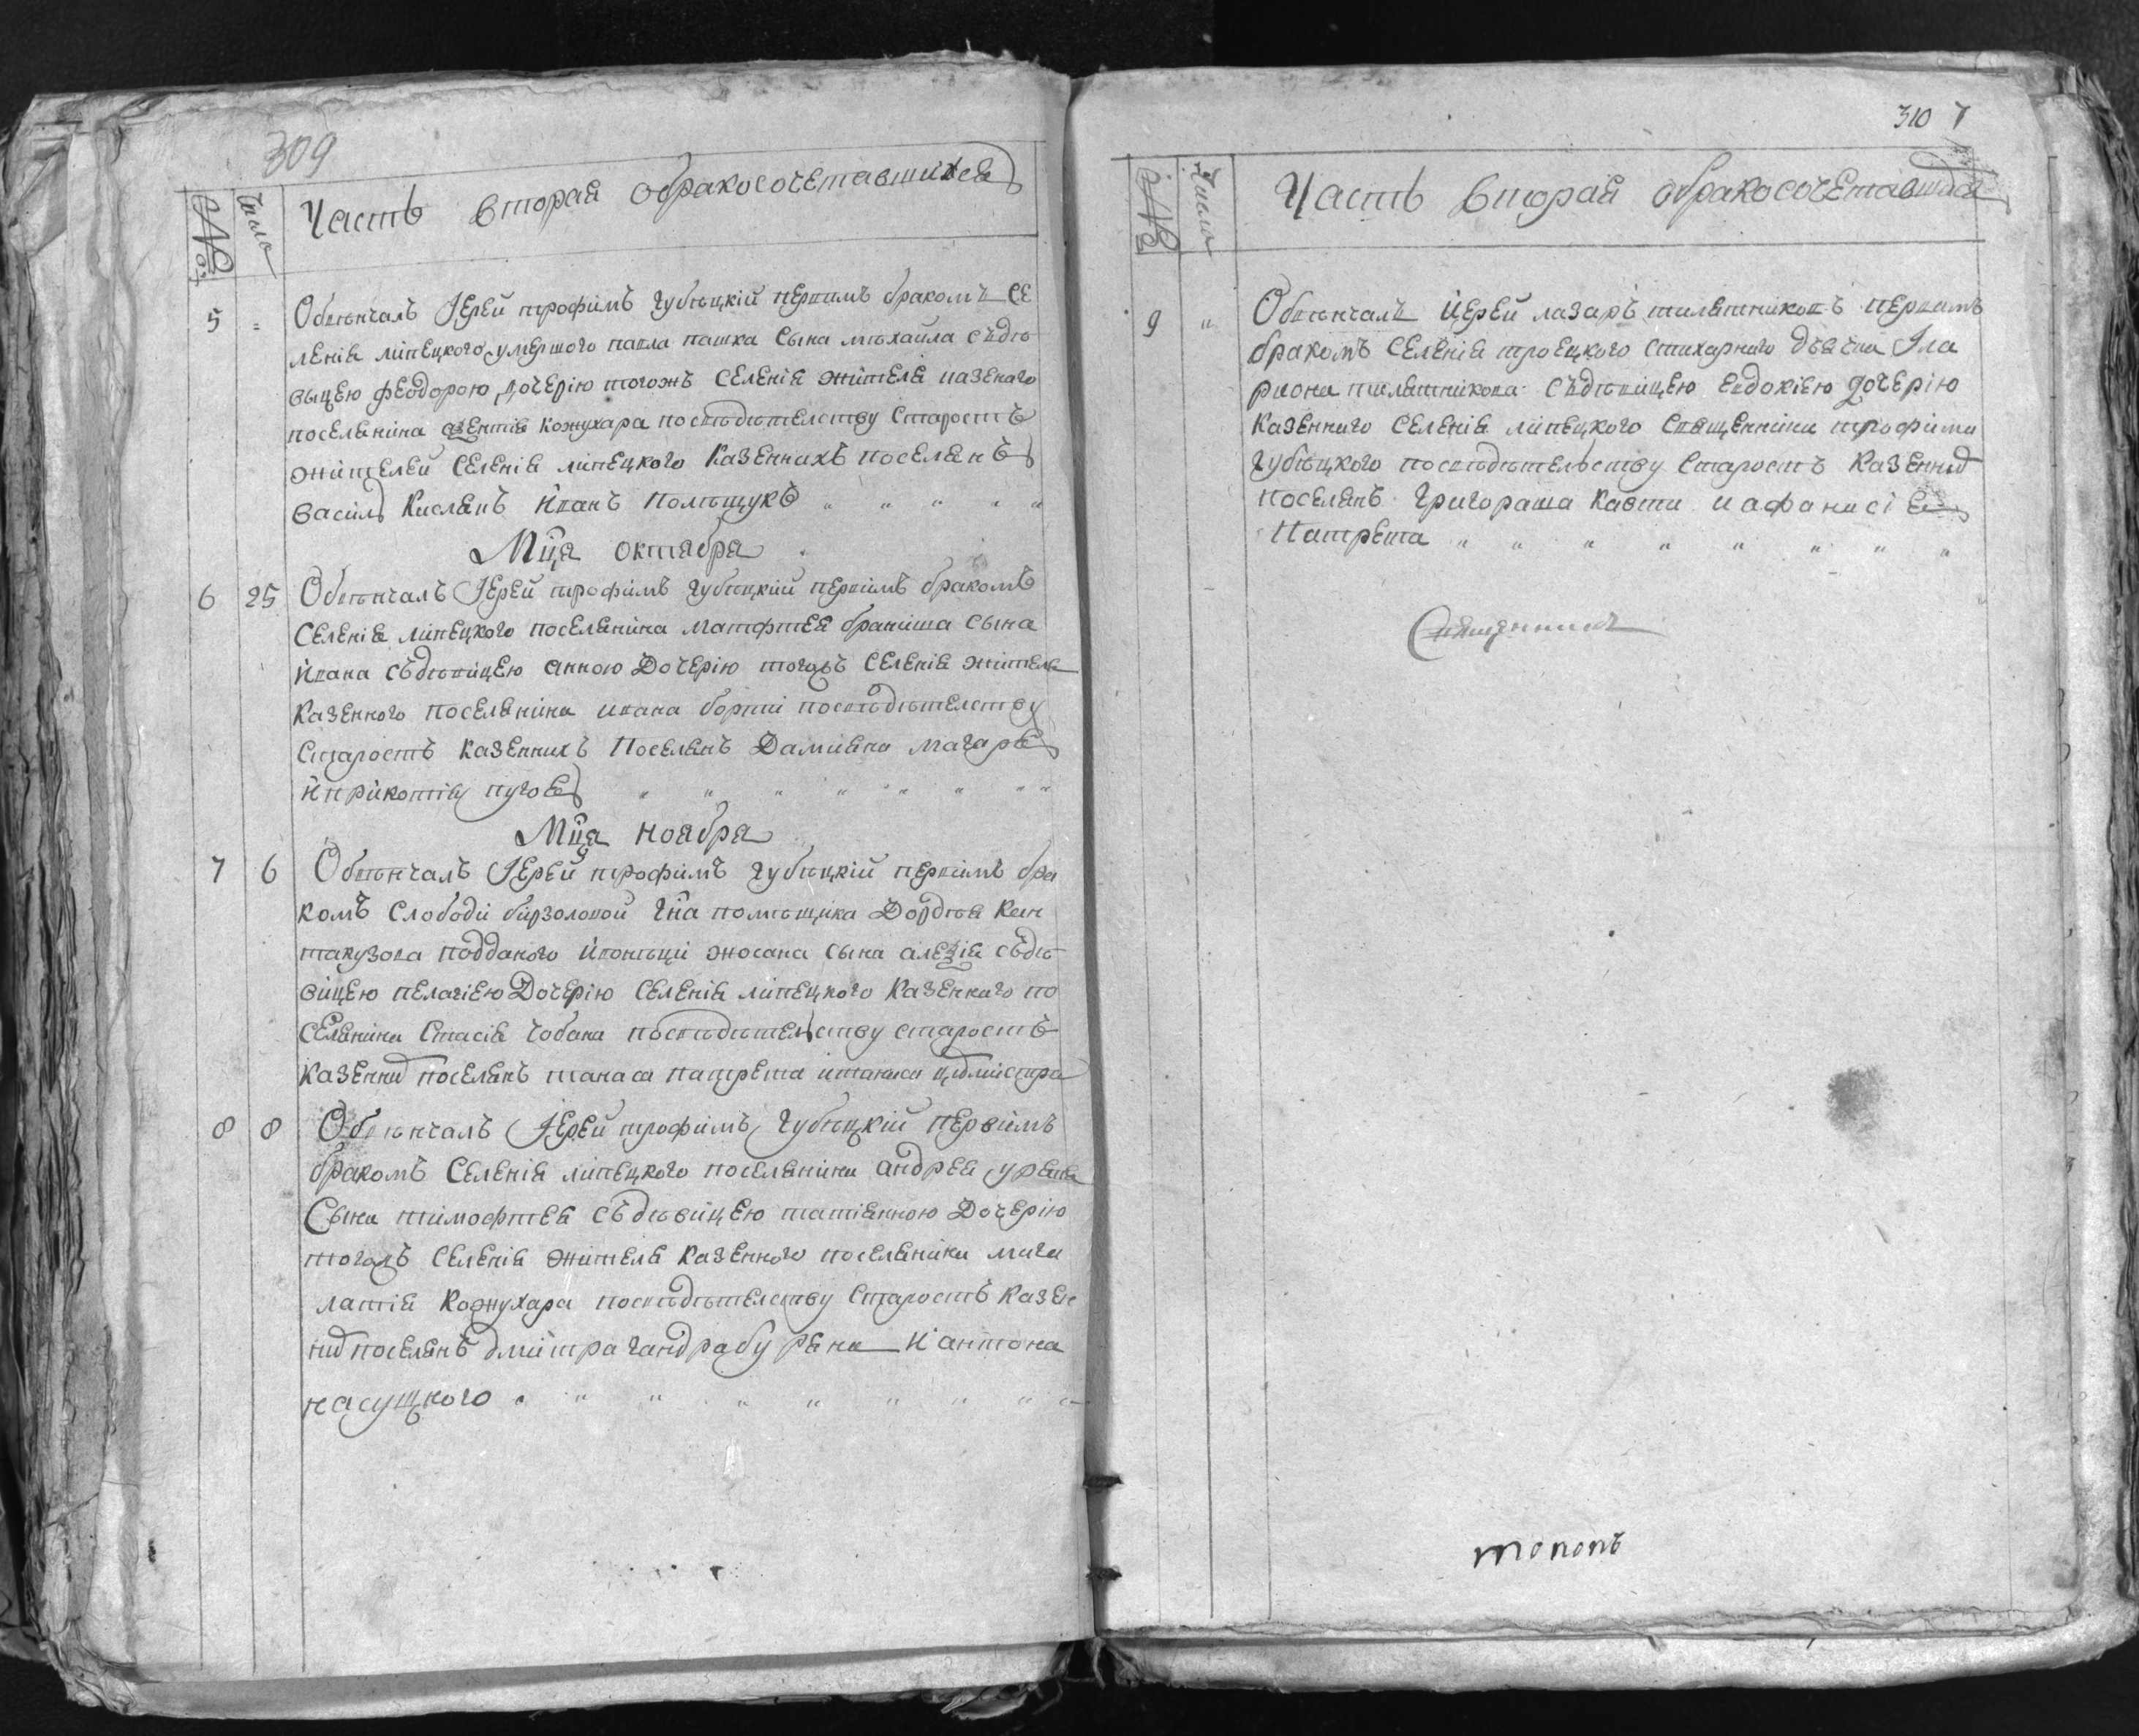 309
№ Число Часть вторая обракосочетавшихся
5 = Обвѣнчалъ Іерей трофимъ Губѣцкій первимъ бракомъ се
ленія липецкого умершого павла пашка сына михаила съдѣ
выцею феодорою, дочерію тогожъ селенія жителя казеного
поселянина кожухара посвѣдѣтелству старостъ
жителей селенія липецкого казеннихъ поселянъ
василя Кислянъ Иванъ полѣщукъ " " " " "
Мца октабра
6 25 Обвѣнчалъ Іерей трофимъ Губѣцкій первимъ бракомъ
селенія липецкого поселянина матфтея браниша сына
ивана съдѣвицею анною Дочерію тогожъ селенія жителя
казенного поселянина ивана посвѣдѣтелству
старостъ казеннихъ поселянъ Дамияна магаря
пугоя " " " " " " " "
Мца ноабра
7 6 Обвѣнчалъ Іерей трофимъ Губѣцкій первимъ бра
комъ слободи бирзоловой Гна помѣщика Дордѣя Кан
такузова подданого жосана сына съдѣ
вицею пелагіею Дочерію селенія липецкого казенного по
селянина стасія чобана посвѣдѣтельству старостъ
казенних поселянъ танаса патрета
8 8 Обвѣнчалъ Іерей трофимъ Губѣцкій первимъ
бракомъ селенія липецкого поселянина андрея
сына тимофтея съдѣвицею татіянною Дочерію
тогожъ селенія жителя казенного поселянина мига
латія кожухара посвѣдѣтелству старостъ казен
них поселянъ дмитра гандрабуряна и антона
насущного " " " " " " " "
310 7
№ Число Часть вторая обракосочетавшихся
9 " Обвѣнчалъ іерей лазаръ тилятниковъ первимъ
бракомъ селенія троецкого стихарного дьячка Іла
риона тилятникова съдѣвицею евдокіею дочерію
казенного селенія липецкого священника трофима
Губѣцкого посвѣдѣтельству старостъ казенних
поселянъ Григораша Кавти иафанасія
Патрета " " " " " " " "
Священникъ